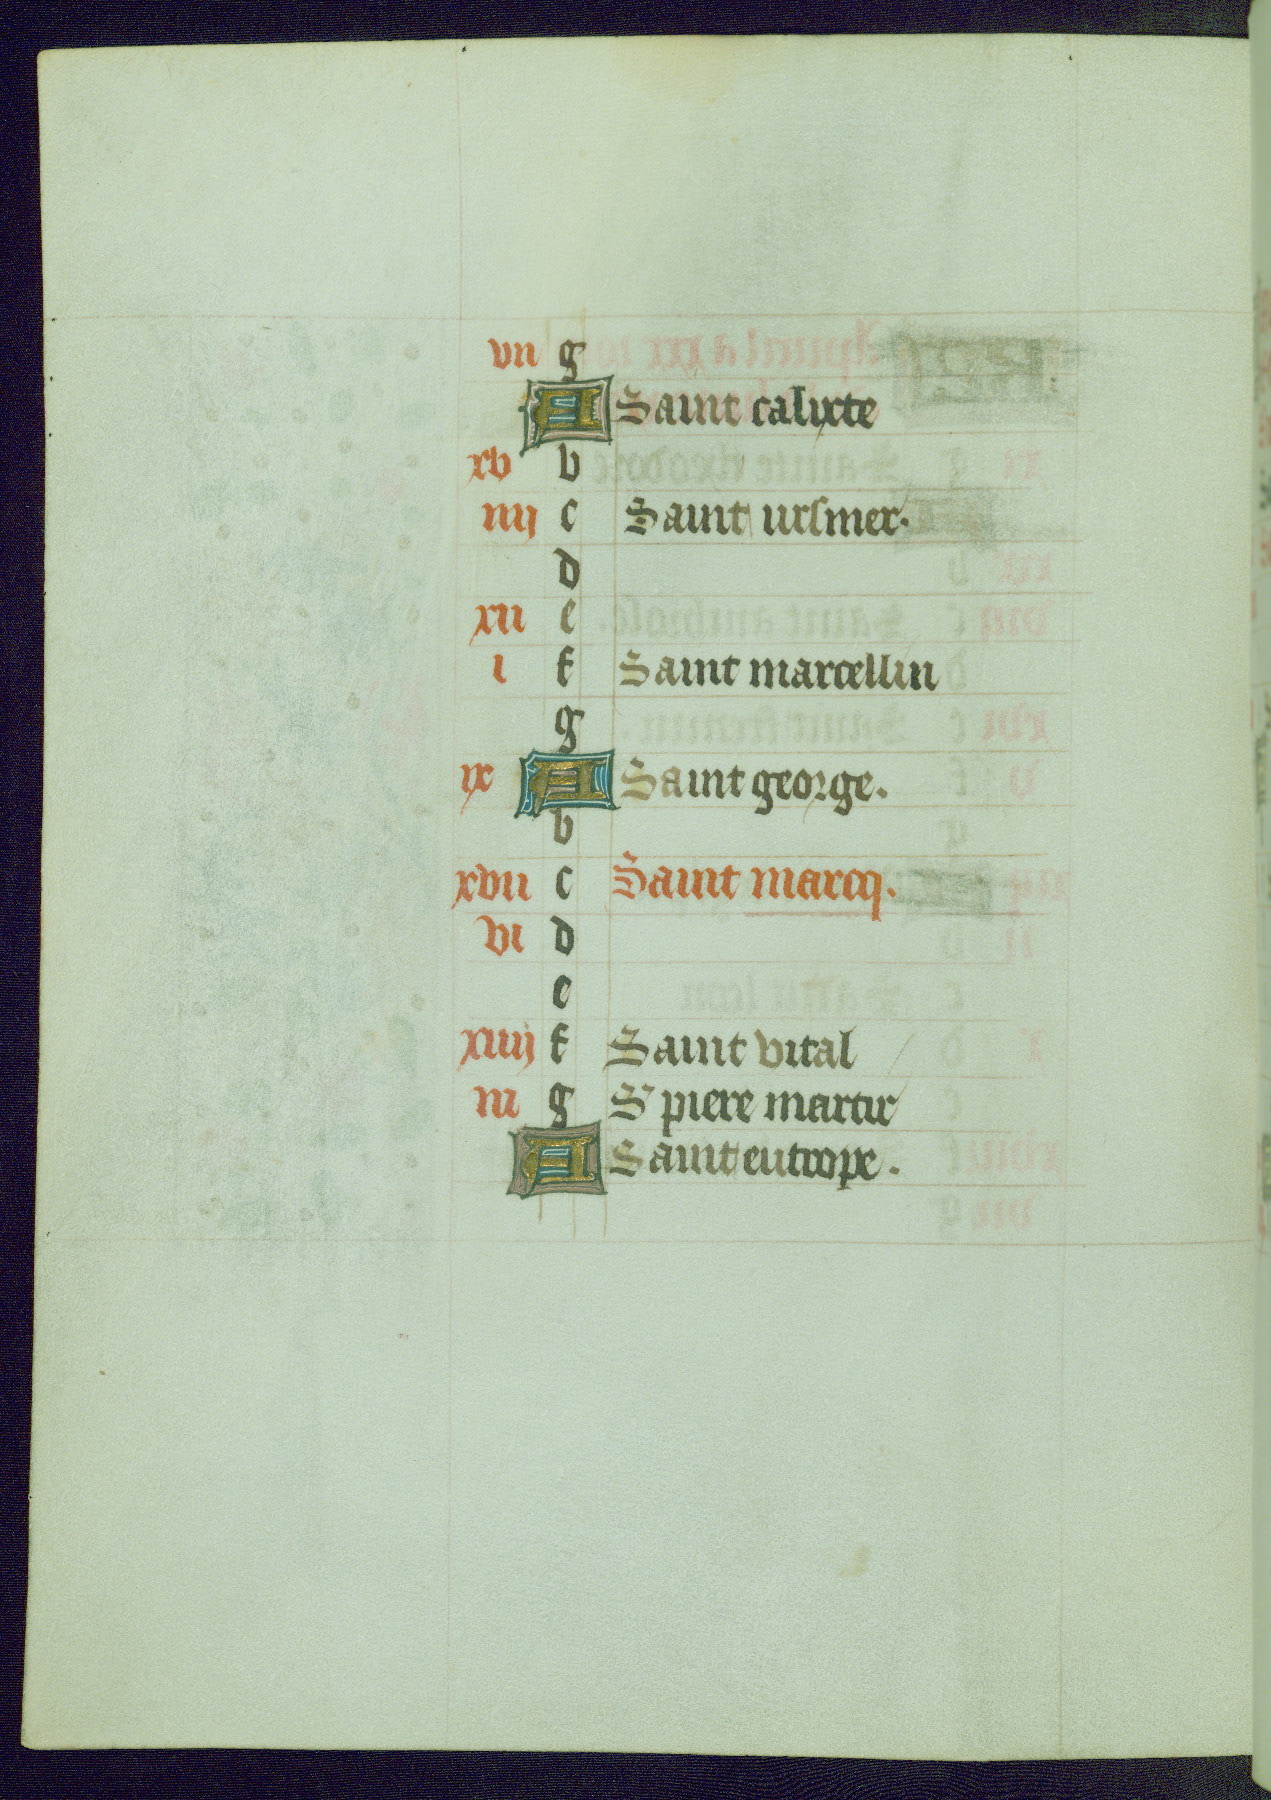 vii g
A Saint calixte
xv b
iiij c Saint ursmer.
d
xii e
i f Saint marcellin
g
ix A Saint george.
b
xvii c Saint marcq.
vi d
e
xiiij f Saint vital
iii g S' piere martir
A Saint eutrope.